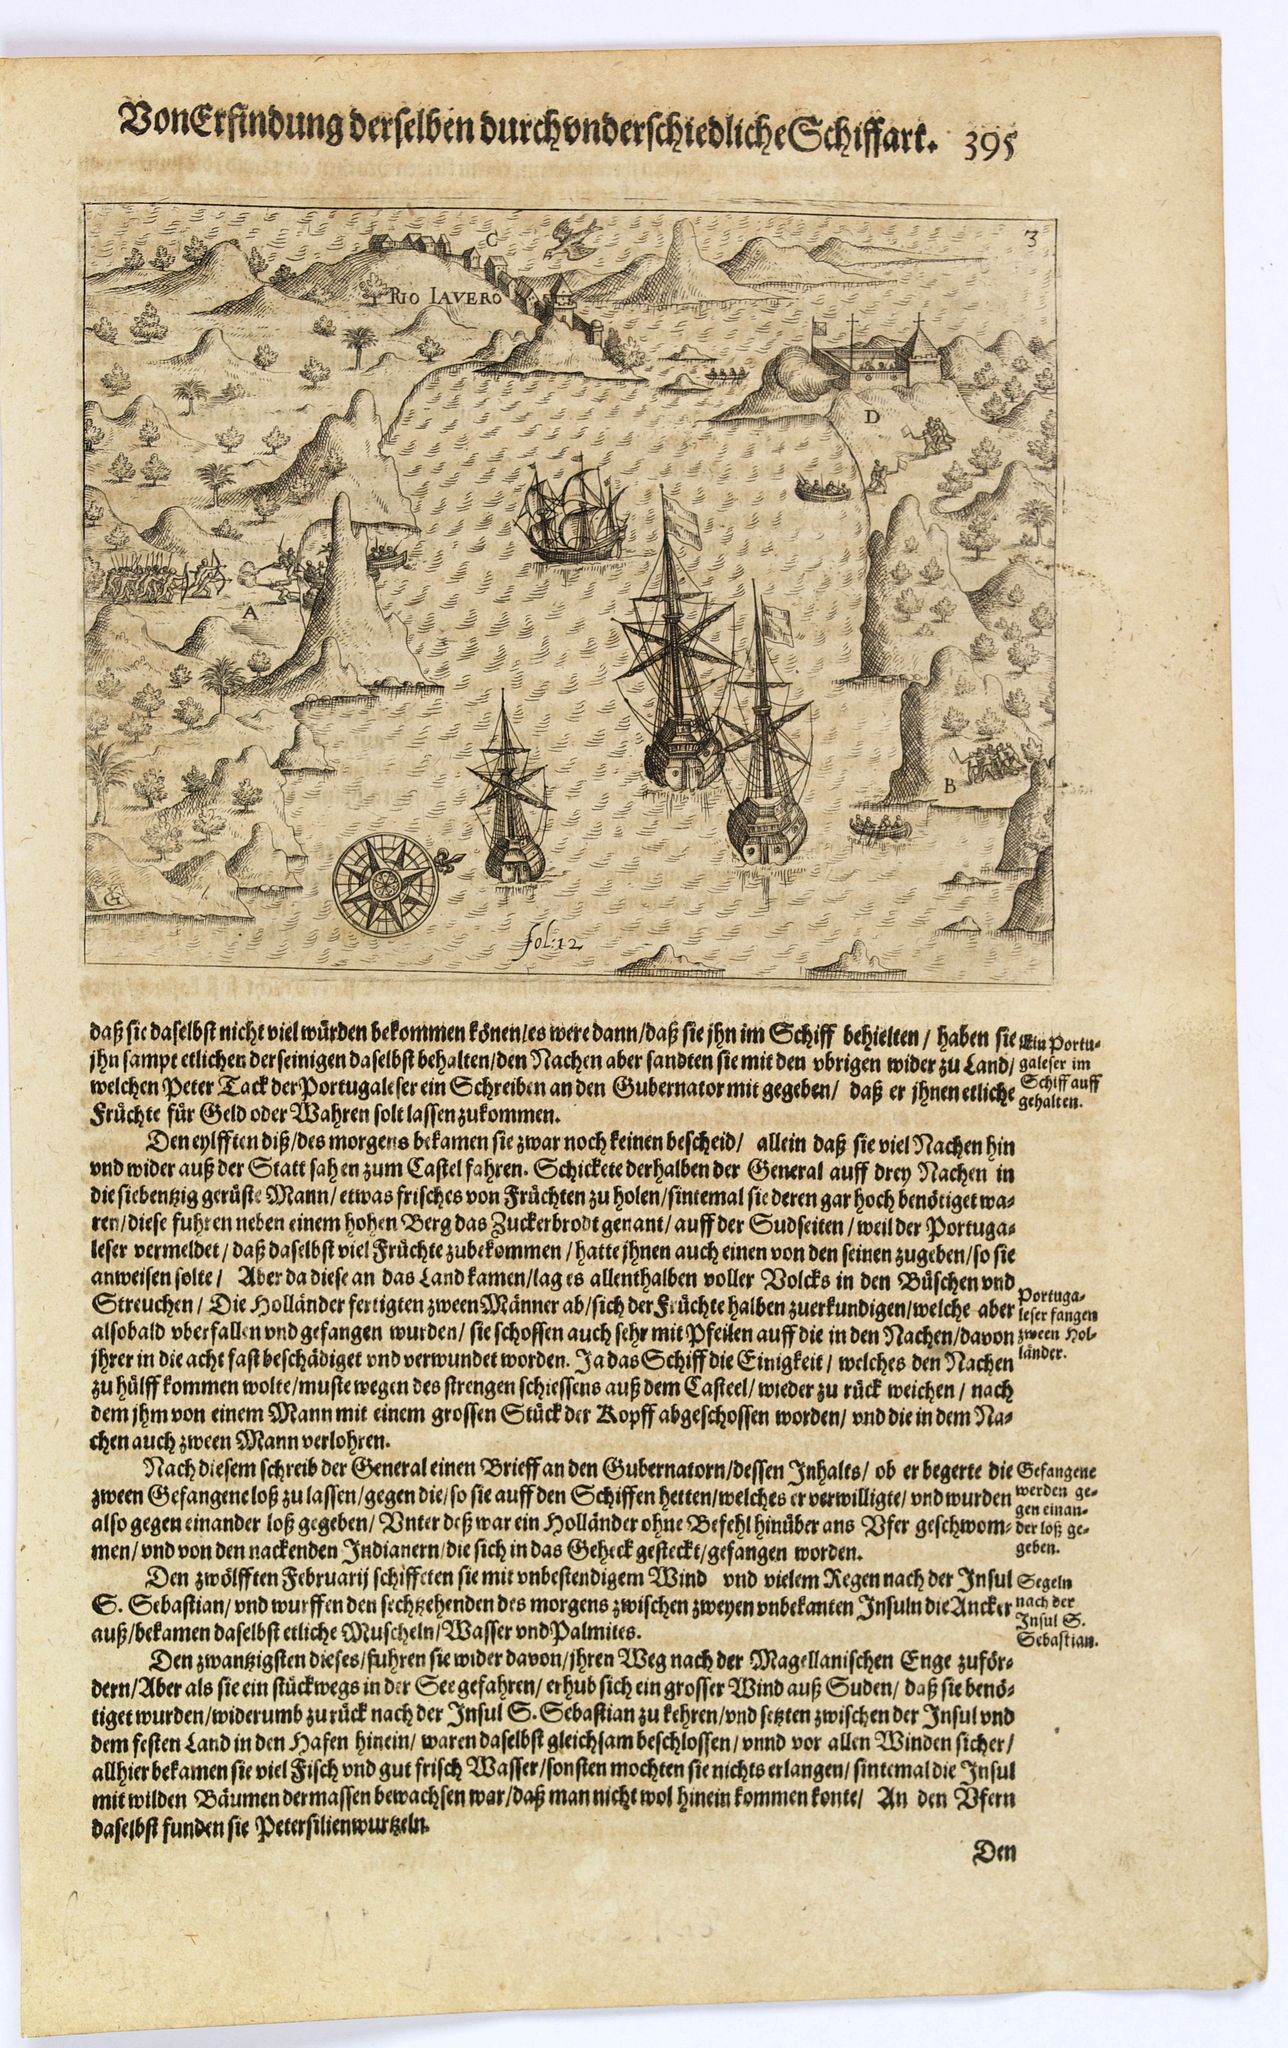 Von Erfindung derselben durch vnderschiedliche Schiffart. 395
3
C
RIO IAVERO
D
A
B
G
fol: 12
daß sie daselbst nicht viel würden bekommen könen/es were dann/daß sie jhn im Schiff behielten/ haben sie
jhn sampt etlichen der seinigen daselbst behalten/den Nachen aber sandten sie mit den vbrigen wider zu Land/
welchen Peter Tack der Portugaleser ein Schreiben an den Gubernator mit gegeben/ daß er jhnen etliche
Früchte für Geld oder Wahren solt lassen zukommen.
Ein Portu-
galeser im
Schiff auff
gehalten.
Den eylfften diß/des morgens bekamen sie zwar noch keinen bescheid/ allein daß sie viel Nachen hin
vnd wider auß der Statt sahen zum Castel fahren. Schickete derhalben der General auff drey Nachen in
die siebentzig gerüste Mann/etwas frisches von Früchten zu holen/sintemal sie deren gar hoch benötiget wa-
ren/diese fuhren neben einem hohen Berg das Zuckerbrodt genant/auff der Sudseiten/weil der Portuga-
leser vermeldet/daß daselbst viel Früchte zubekommen/hatte jhnen auch einen von den seinen zugeben/so sie
anweisen solte/ Aber da diese an das Land kamen/lag es allenthalben voller Volcks in den Büschen vnd
Streuchen/Die Holländer fertigten zween Männer ab/sich der Früchte halben zuerkundigen/welche aber
alsobald vberfallen vnd gefangen wurden/sie schossen auch sehr mit Pfeilen auff die in den Nachen/davon
jhrer in die acht fast beschädiget vnd verwundet worden. Ja das Schiff die Einigkeit/welches den Nachen
zu hülff kommen wolte/muste wegen des strengen schiessens auß dem Casteel/wieder zu rück weichen/nach
dem jhm von einem Mann mit einem grossen Stück der Kopff abgeschossen worden/vnd die in dem Na-
chen auch zween Mann verlohren.
Portuga-
leser fangen
zween Hol-
länder.
Nach diesem schreib der General einen Brieff an den Gubernatorn/dessen Inhalts/ob er begerte die
zween Gefangene loß zu lassen/gegen die/so sie auff den Schiffen hetten/welches er verwilligte/vnd wurden
also gegen einander loß gegeben/Vnter deß war ein Holländer ohne Befehl hinüber ans Vfer geschwom-
men/vnd von den nackenden Indianern/die sich in das Geheck gesteckt/gefangen worden.
Gefangene
werden ge-
gen einan-
der loß ge-
geben.
Den zwölfften Februarij schiffeten sie mit vnbestendigem Wind vnd vielem Regen nach der Insul
S. Sebastian/vnd wurffen den sechtzehenden des morgens zwischen zweyen vnbekanten Insuln die Ancker
auß/bekamen daselbst etliche Muscheln/Wasser vnd Palmites.
Segeln
nach der
Insul S.
Sebastian.
Den zwantzigsten dieses/fuhren sie wider davon/jhren Weg nach der Magellanischen Enge zuför-
dern/Aber als sie ein stückwegs in der See gefahren/erhub sich ein grosser Wind auß Suden/daß sie benö-
tiget wurden/widerumb zu rück nach der Insul S. Sebastian zu kehren/vnd setzten zwischen der Insul vnd
dem festen Land in den Hafen hinein/waren daselbst gleichsam beschlossen/vnnd vor allen Winden sicher/
allhier bekamen sie viel Fisch vnd gut frisch Wasser/sonsten mochten sie nichts erlangen/sintemal die Insul
mit wilden Bäumen dermassen bewachsen war/daß man nicht wol hinein kommen konte/ An den Vfern
daselbst funden sie Petersilienwurtzeln.
Den